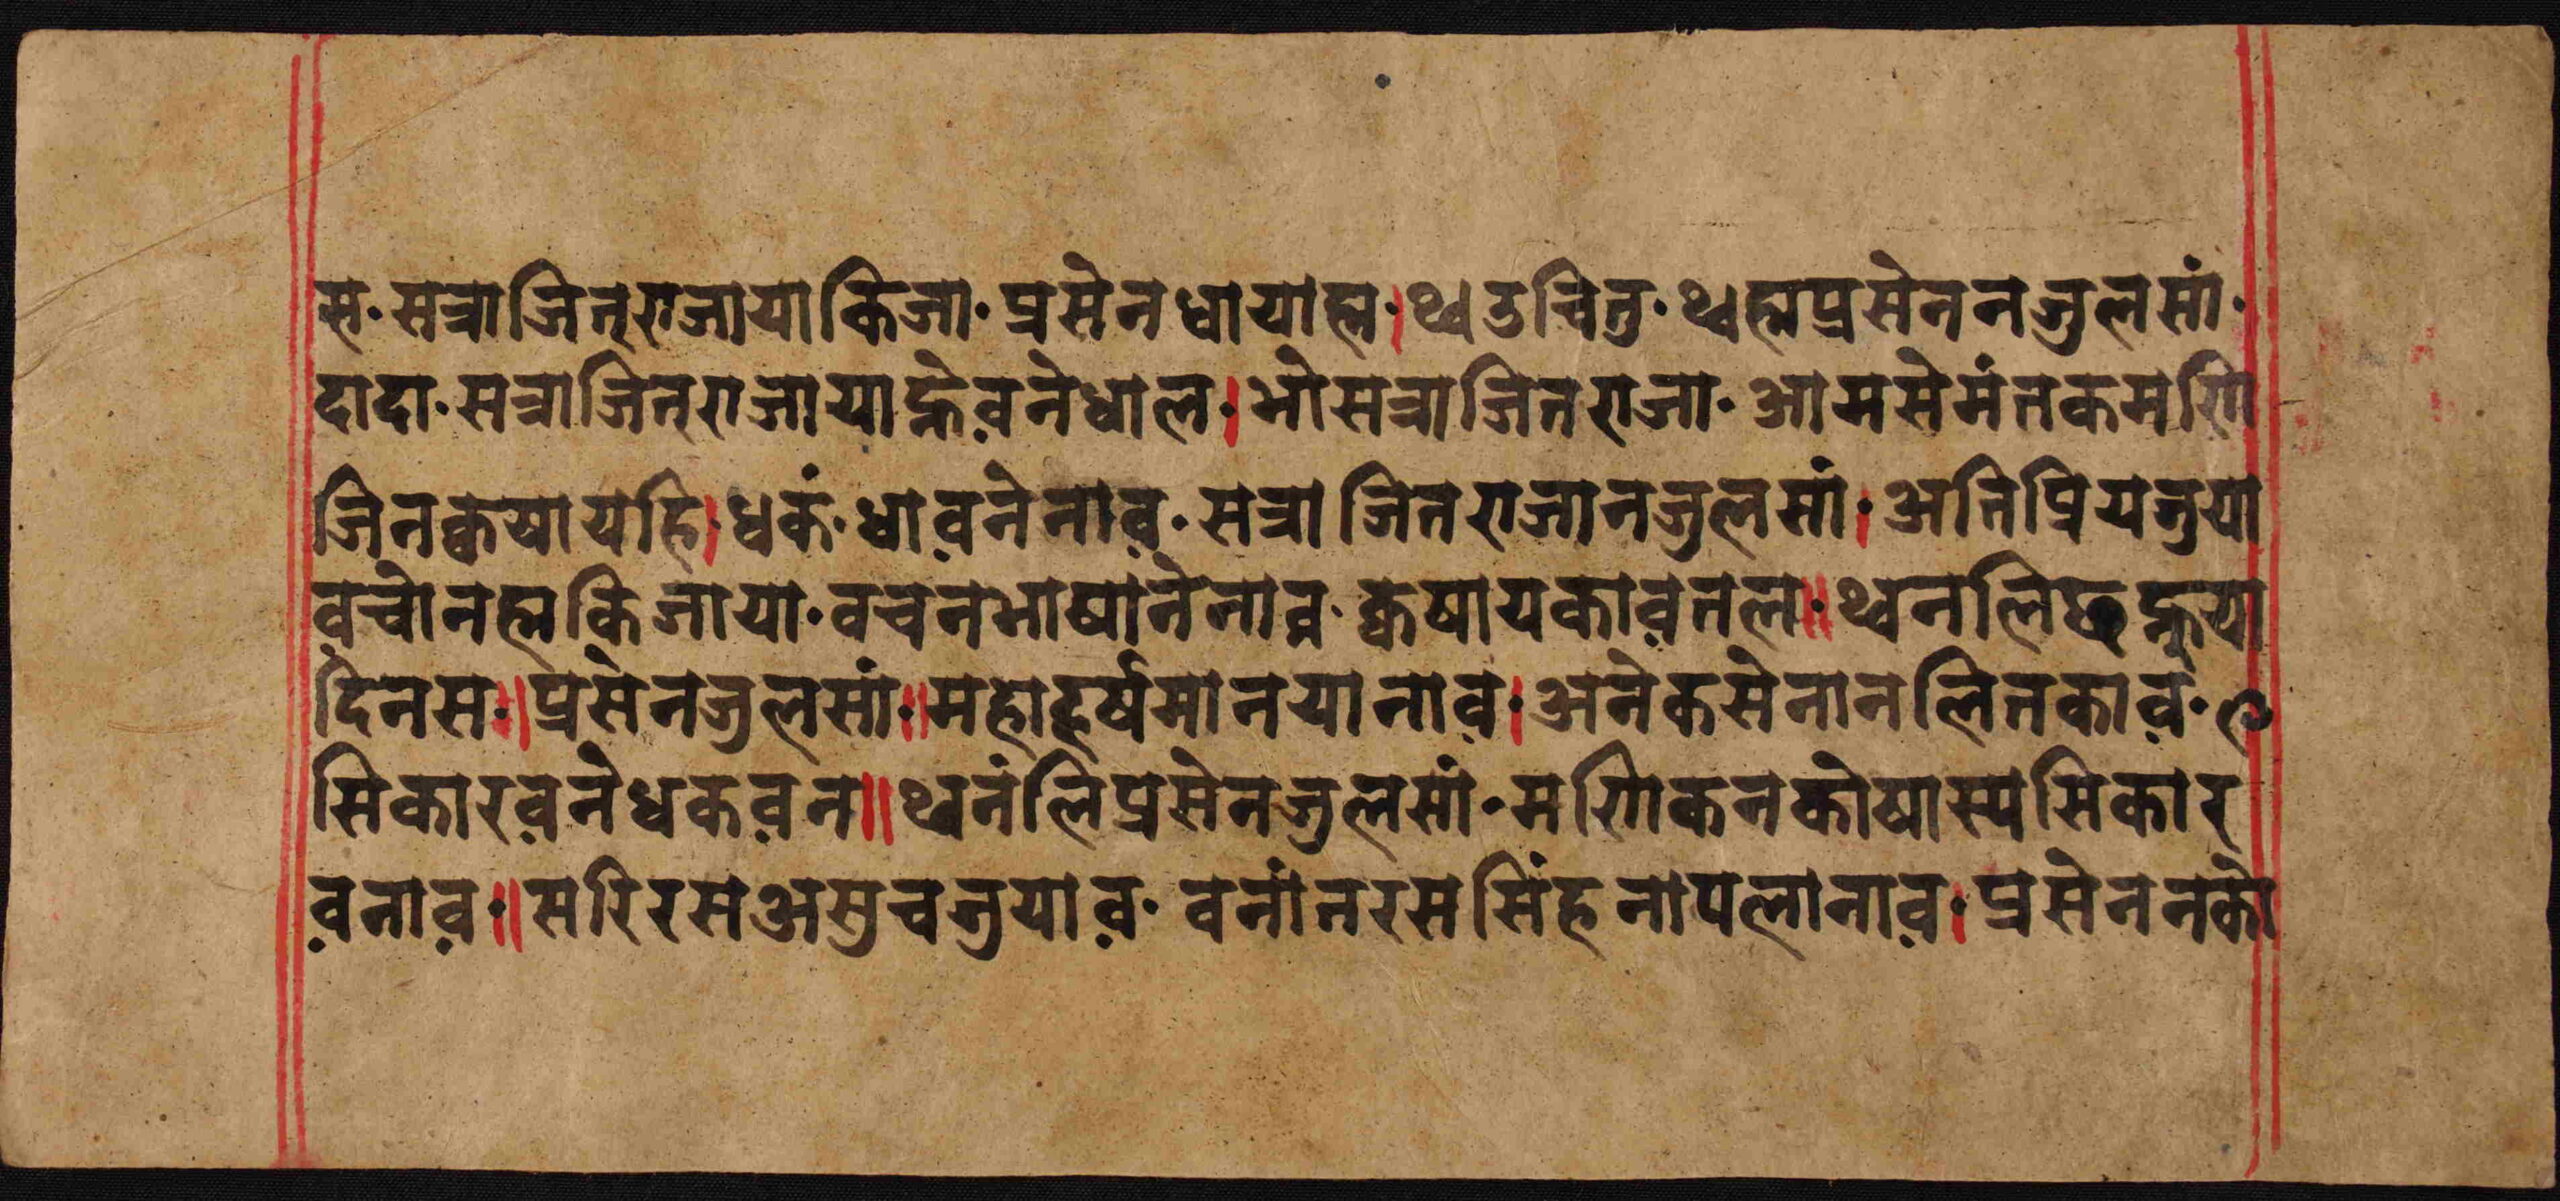 स· सत्राजित्राजायाकिजा· प्रसेन धायाह्म·। थ्व उचितु· थ्वह्मप्रसेननजुलसां·
दादा· सत्राजित्राजायाह्नेव़नेधाल·। भोसत्राजितराजा· आमसेमंतकमणि
जिनक्वषायहि·। धकं· धाव़नेनाव़· सत्राजितराजानजुलसां·। अतिप्रियजुया
व़चोनह्मकिजाया· वचनभाषानेनाव़· क्वषायकाव़तल·॥ थ्वनलिछह्नुया
दिनस·॥ प्रसेनजुलसां·॥ महाहर्षमानयानाव़·। अनेकसेनानलितकाव़·
सिकारव़नेधकव़न॥ थ्वनंलिप्रसेनजुलसां· मणिकनकोषास्यसिकार
व़नाव़·॥ सरिरसअसुचजुयाव़· वनांतरससिंहनापलानाव़·। प्रसेननको